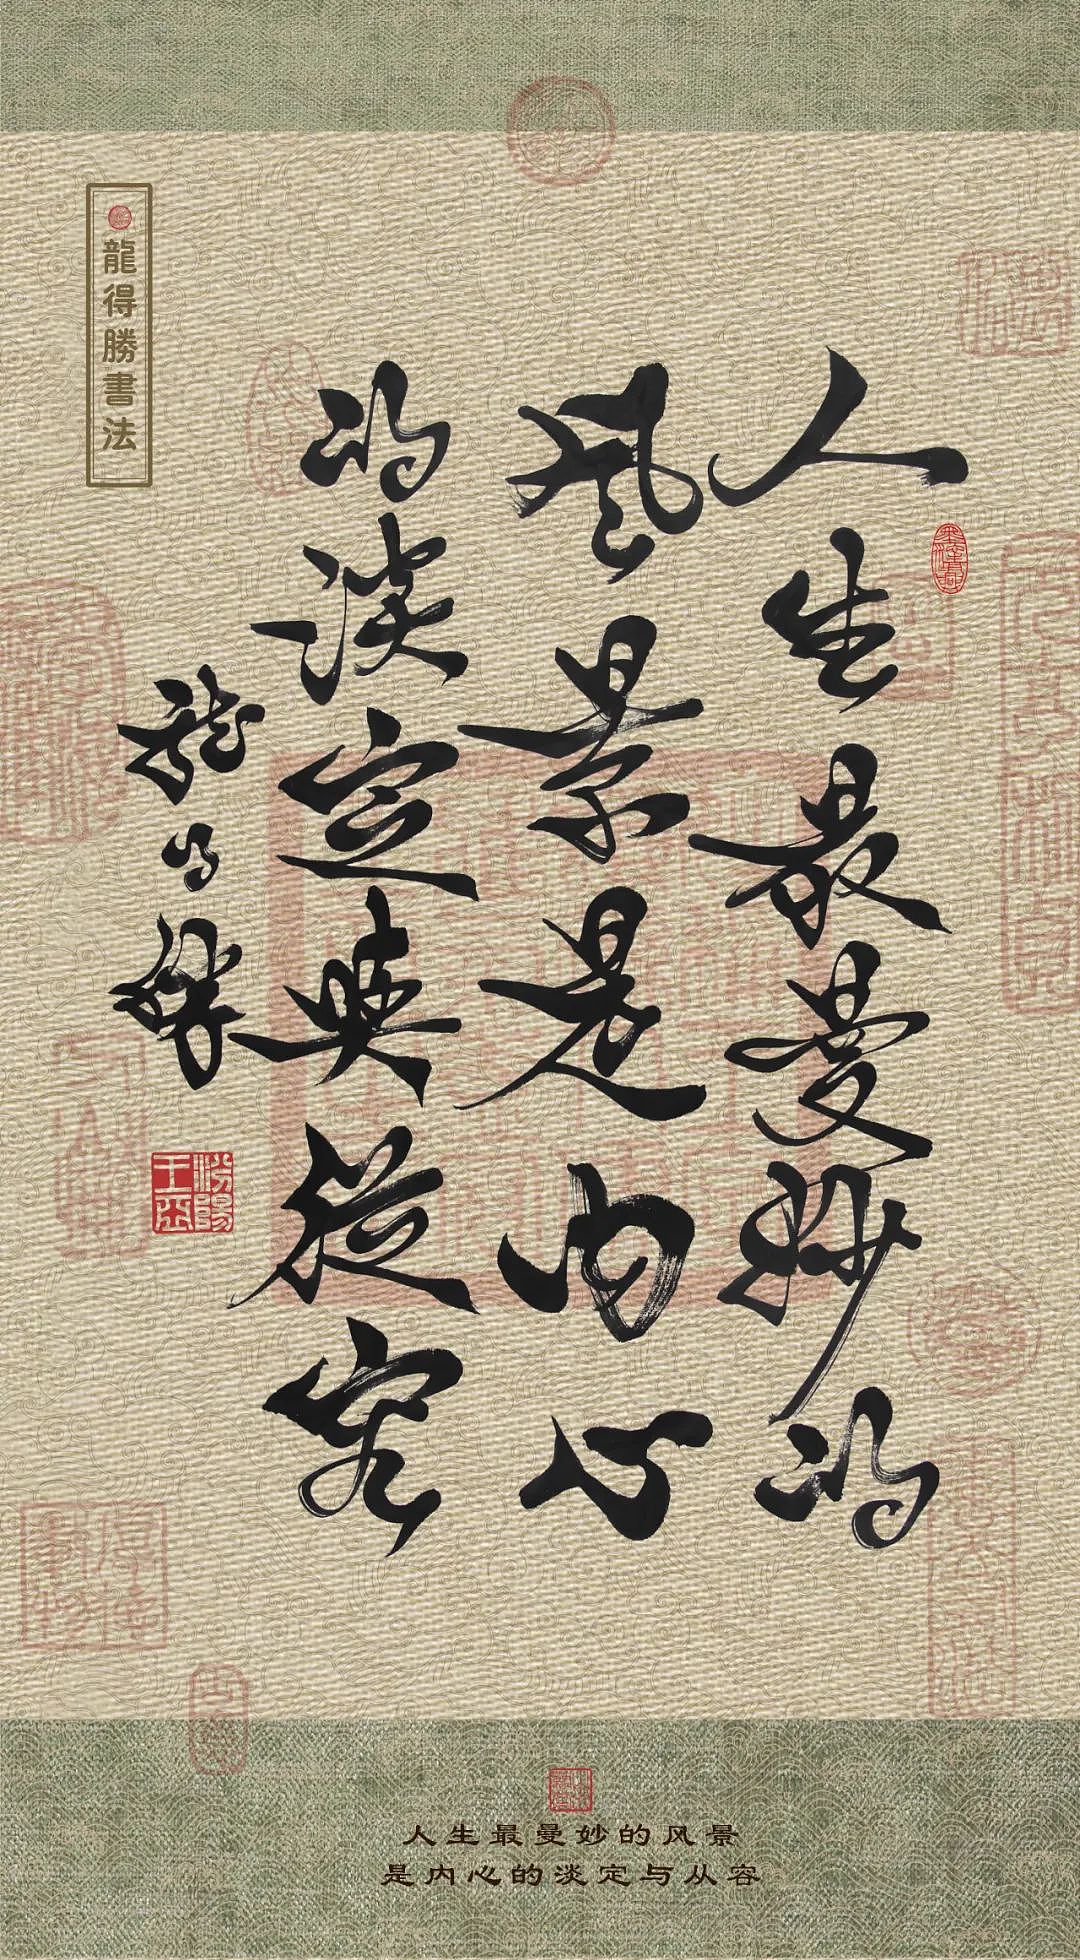 龍得勝書法
人生最曼妙的
风景是内心
的淡定與從容
龙得胜
人生最曼妙的风景
是内心的淡定与从容